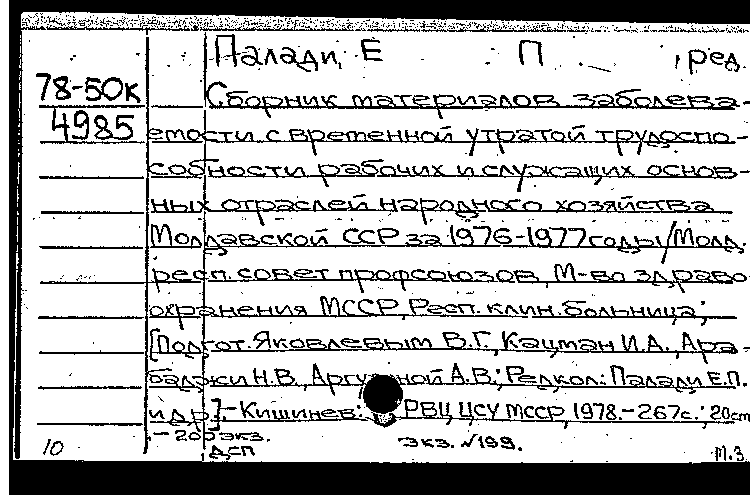 Палади, Е П , ред.
78-50к Сборник материалов заболева-
4985 емости с временной утратой трудоспо-
собности рабочих и служащих основ-
ных отраслей народного хозяйства
Молдавской ССР за 1976-1977 годы / Молд.
респ. совет профсоюзов, М-во здраво
охранения МССР, Респ. клин. больница;
[Подгот. Яковлевым В.Г., Кацман И.А., Ара-
баджи Н.В., А.В.; Редкол.: Палади Е.П.
и др.]. - Кишинев: РВЦ ЦСУ МССР, 1978. - 267с.; 20см
- 200 экз. экз. №199.
10 ДСП М.З